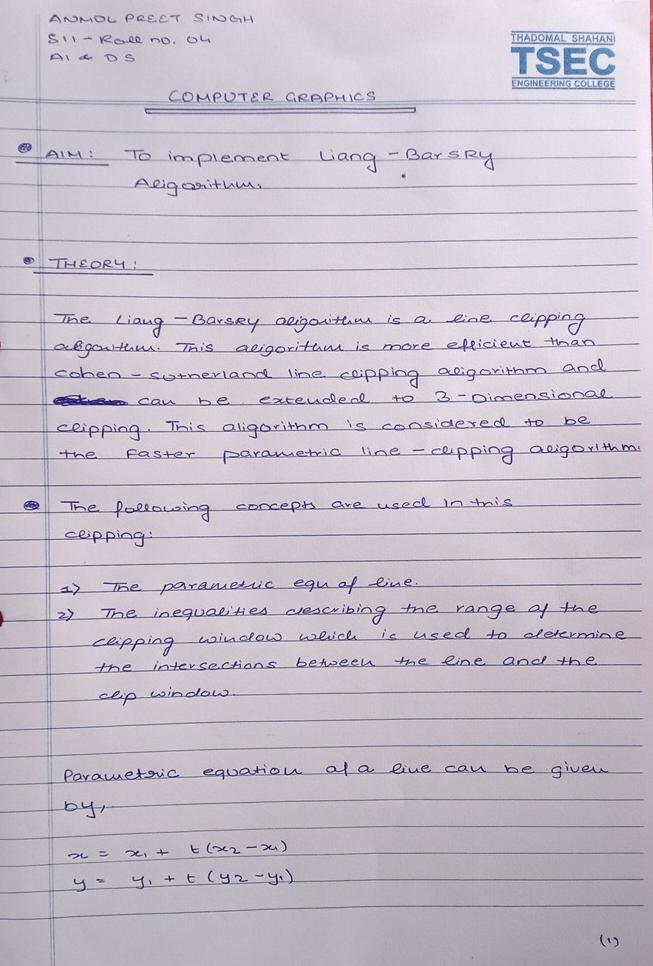 ANMOL PREET SINGH
S11 - Roll no. 04
AI & DS
THADOMAL SHAHANI
TSEC
ENGINEERING COLLEGE
COMPUTER GRAPHICS
AIM: To implement Liang - BarSRY
Aligorithm.
THEORY:
The Liang - BarSRY aligorithm is a line clipping
algorithm. This aligorithm is more efficient than
cohen - sutherland line clipping aligorithm and
can be extended to 3-Dimensional
clipping. This aligorithm is considered to be
the faster parametric line - clipping aligorithm.
The following concepts are used in this
clipping:
1) The parametric equ of line.
2) The inequalities describing the range of the
clipping window which is used to determine
the intersections between the line and the
clip window.
Parametric equation of a line can be given
by,
x = x1 + t(x2 - x1)
y = y1 + t (y2 - y1)
(1)